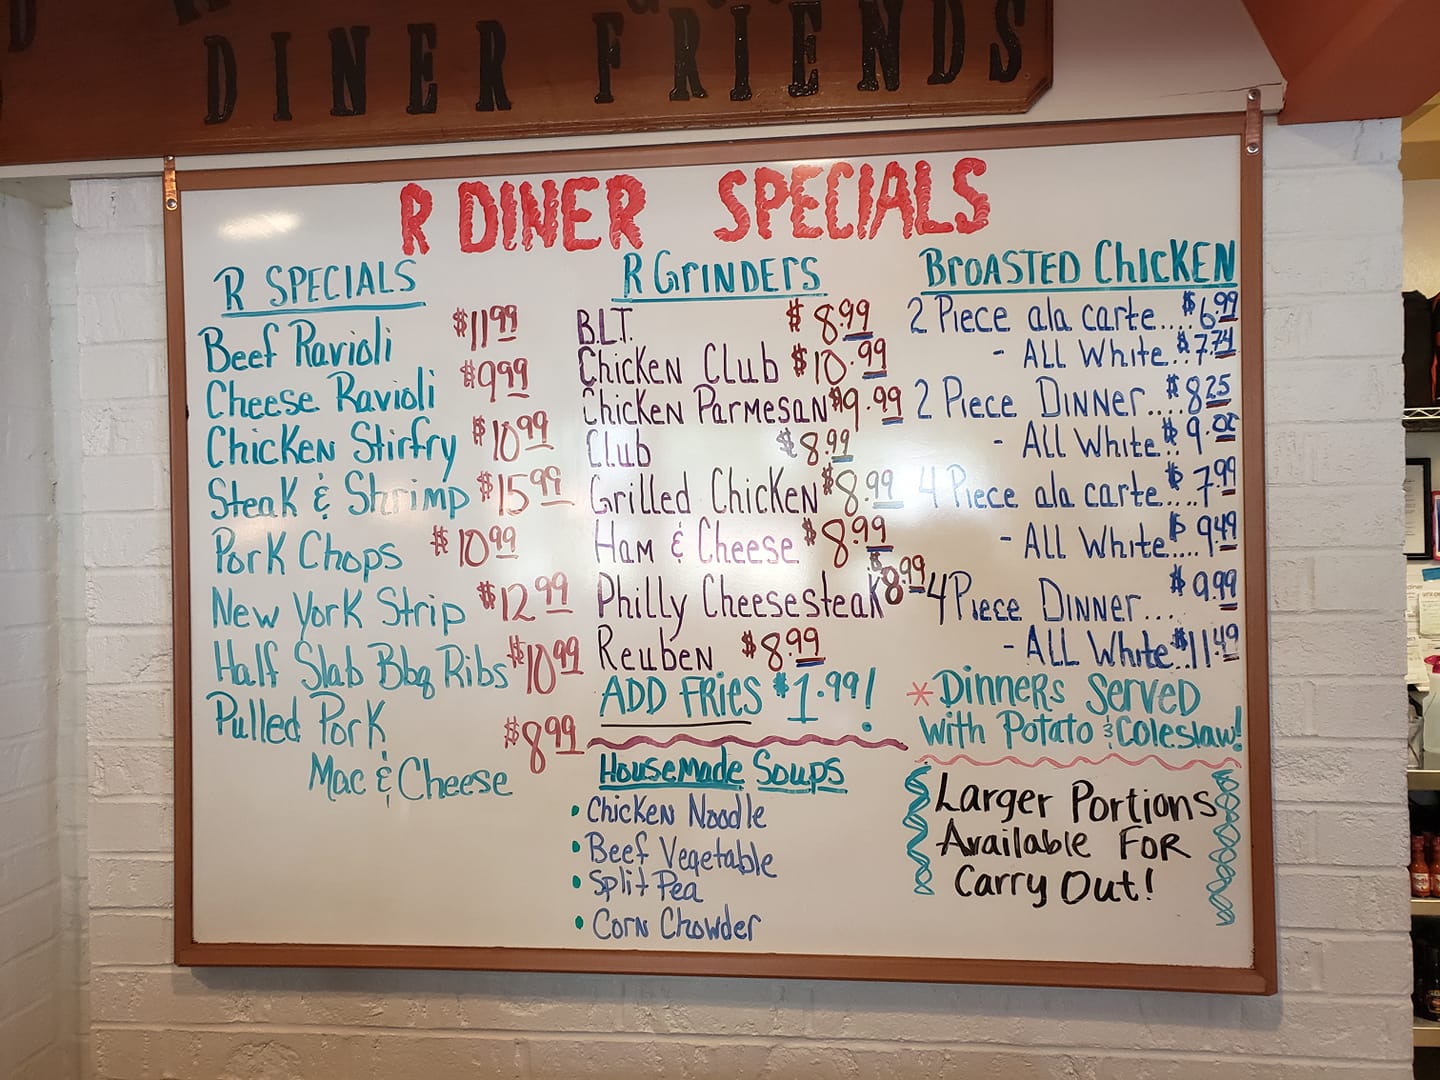 DINER FRIENDS
R DINER SPECIALS
R SPECIALS
Beef Ravioli $11.99
Cheese Ravioli $9.99
Chicken Stirfry $10.99
Steak & Shrimp $15.99
Pork Chops $10.99
New York Strip $12.99
Half Slab Bbq Ribs $10.99
Pulled Pork
Mac & Cheese $8.99
R GrINDERS
B.L.T. $8.99
Chicken Club $10.99
Chicken Parmesan $9.99
Club $8.99
Grilled Chicken $8.99
Ham & Cheese $8.99
Philly Cheesesteak $8.99
Reuben $8.99
ADD Fries $1.99!
Housemade Soups
• Chicken Noodle
• Beef Vegetable
• Split Pea
• Corn Chowder
Broasted Chicken
2 Piece ala carte....$6.99
- All White..$7.74
2 Piece Dinner....$8.25
- All White..$9
4 Piece ala carte....$7.99
- All White....$9.49
4 Piece Dinner... $9.99
- All White..$11.49
*Dinners Served
with Potato & Coleslaw!
Larger Portions
Available For
Carry Out!